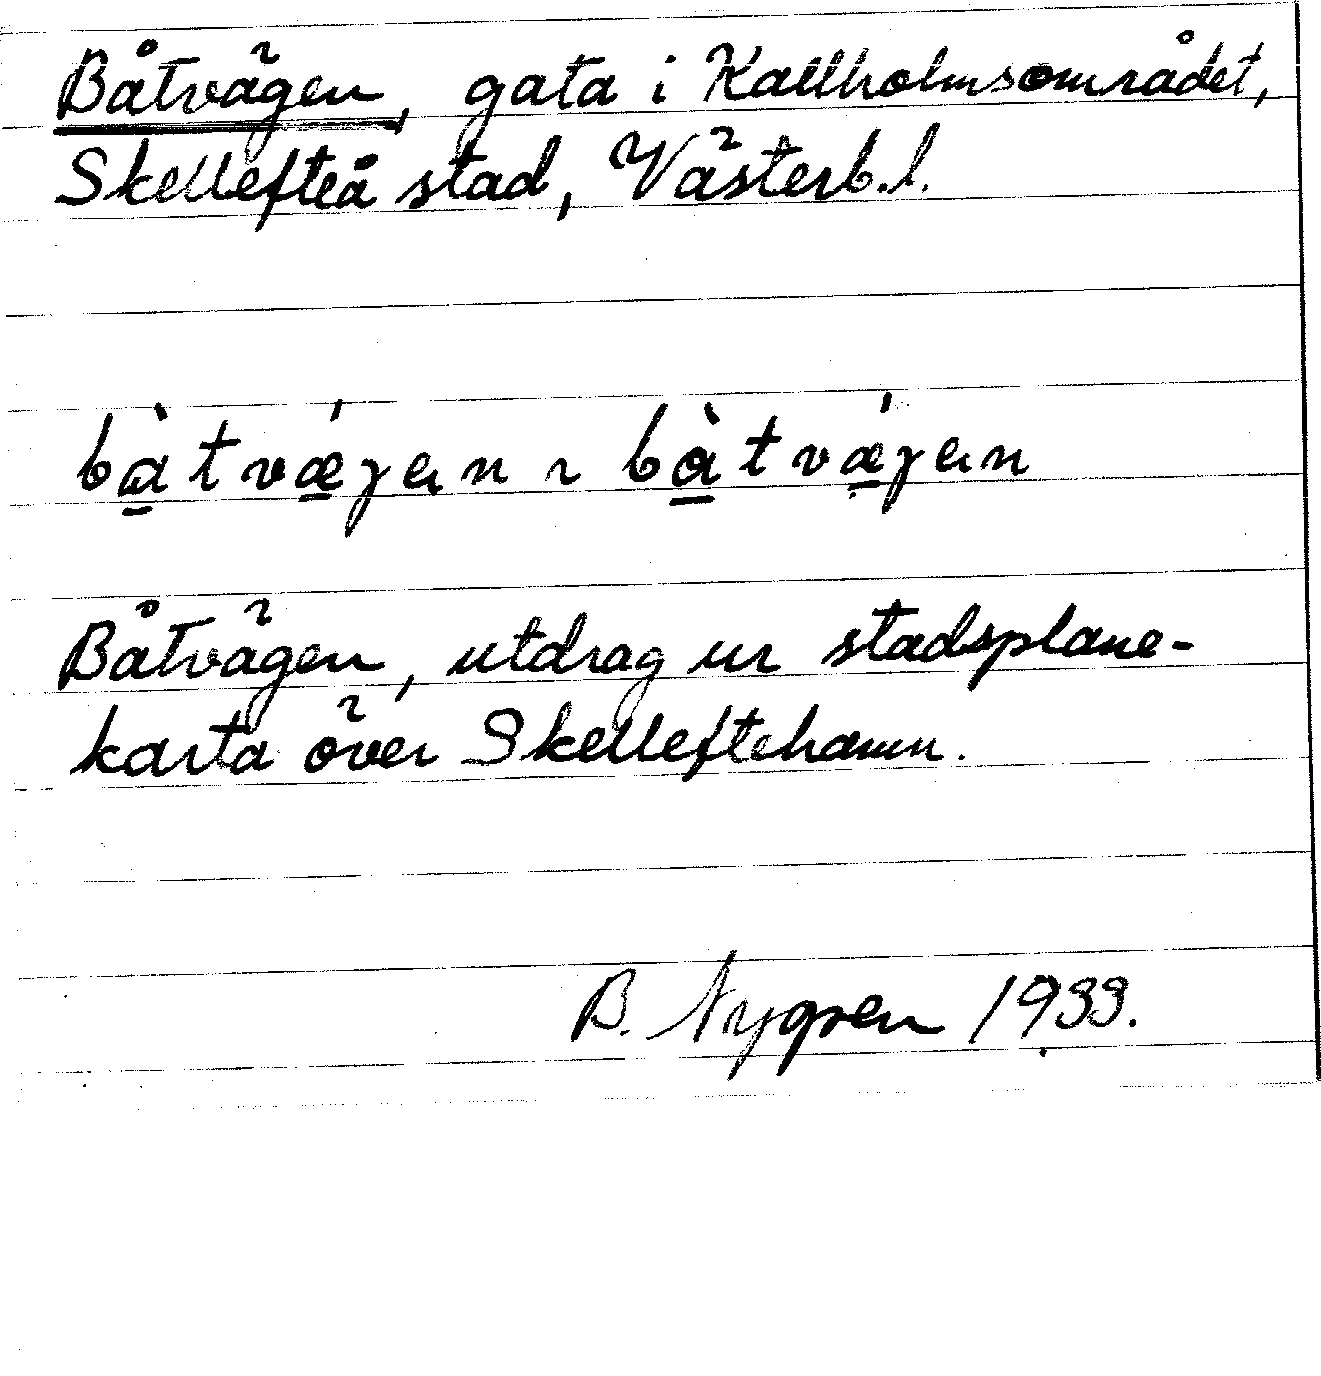 Båtvägen, gata i Kallholmsområdet,
Skellefteå stad, Västerb.l.
bàtvǽgen ~ bàtvǽgen
Båtvägen, utdrag ur stadsplane-
karta över Skelleftehamn.
B. Nygren 1933.